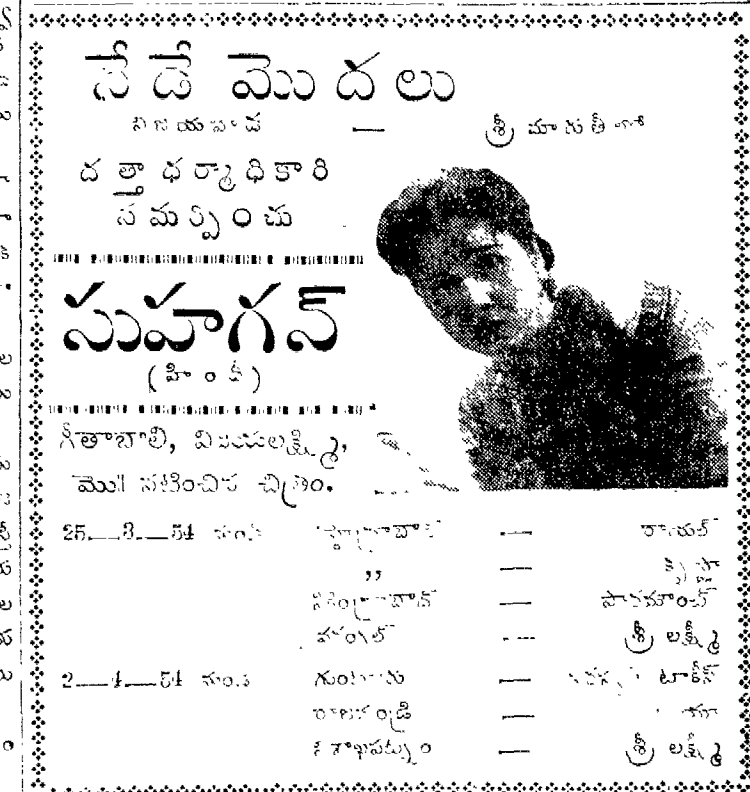 నేడే మొదలు
విజయవాడ — శ్రీ మారుతీలో
దత్తాధర్మాధికారి
సమర్పించు
సుహాగన్
(హిందీ)
గీతాబాలి, విజయలక్ష్మి,
మొ॥ నటించిన చిత్రం.
25—3—54 నుంచి హైద్రాబాద్ — రాయల్
,, — కృష్ణా
సికింద్రాబాద్ —
వరంగల్ — శ్రీ లక్ష్మీ
2—4—54 నుంచి గుంటూరు — టాకీస్
రాజమండ్రి —
విశాఖపట్నం — శ్రీ లక్ష్మీ